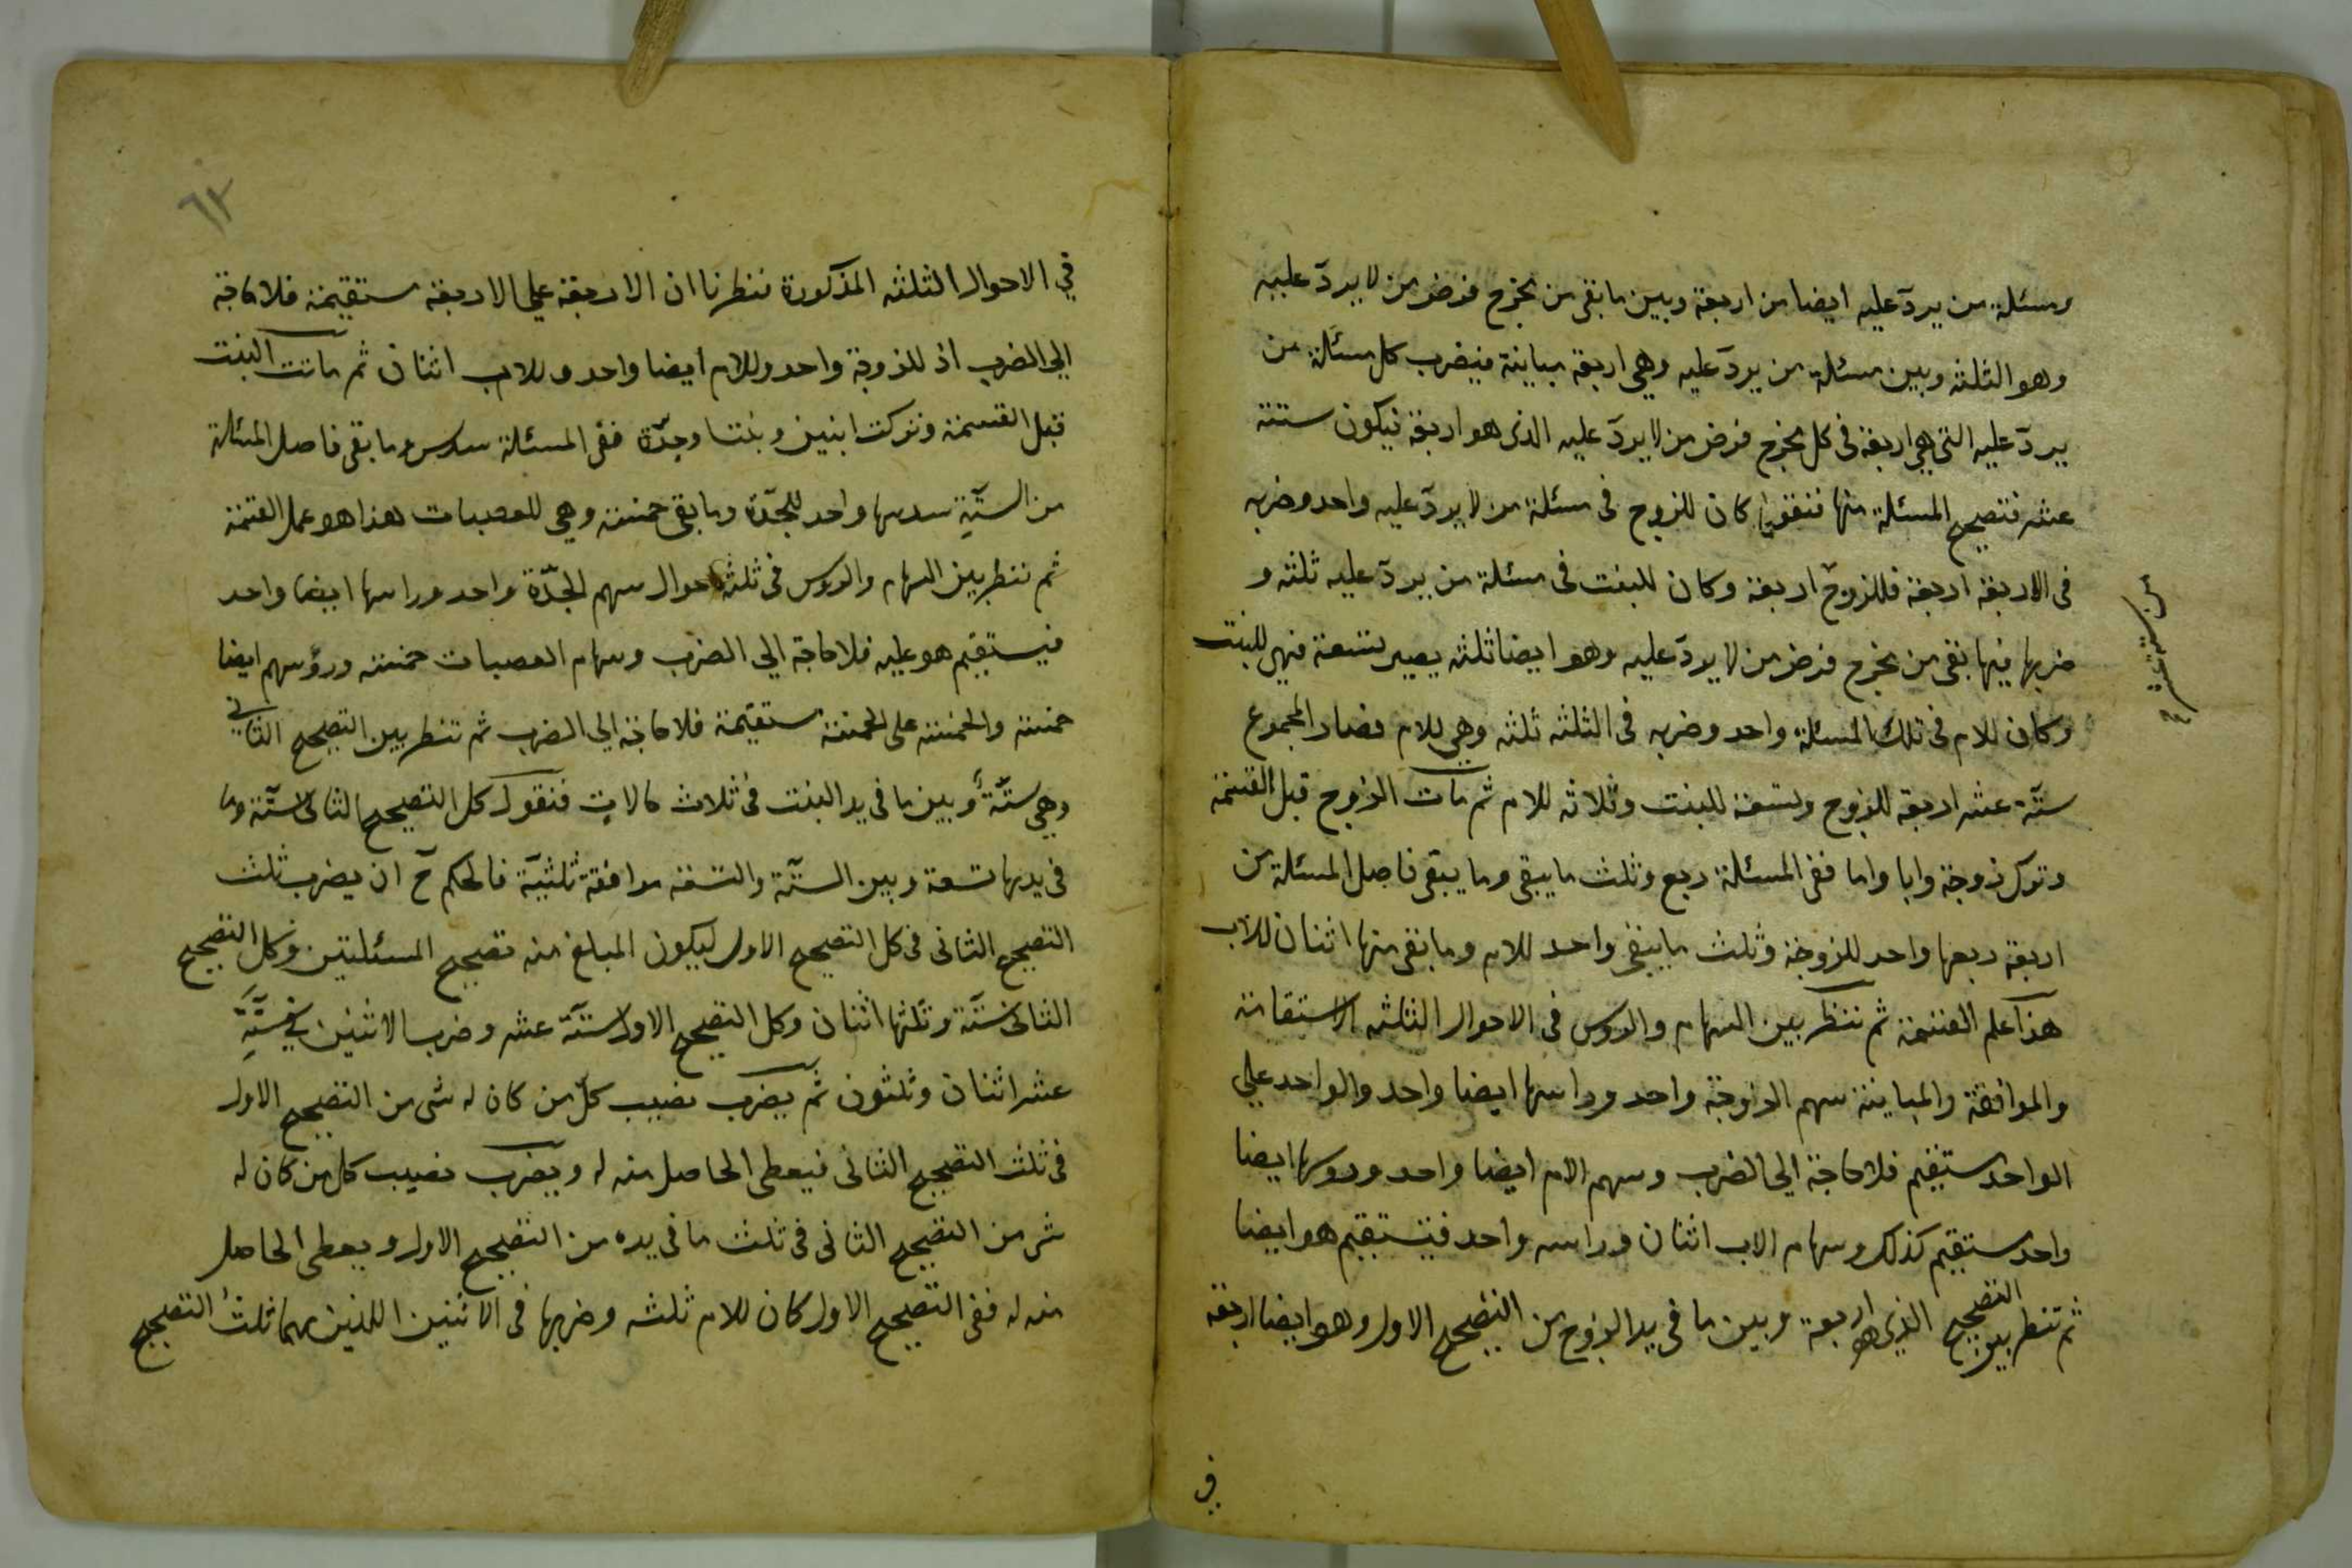 ومسئلة من يردّ عليه ايضا من اربعة وبين ما بقى من مخرج فرض من لا يردّ عليه
وهو الثلثه وبين مسئلة من يردّ عليه وهي اربعة مباينة فيضرب كل مسئلة من
يردّ عليه التي هي اربعة في كل مخرج فرض من لا يردّ عليه الذى هو اربعة فيكون ستة
عشر فتصحيح المسئلة منها فنقول كان للزوج فى مسئلة من لا يردّ عليه واحد وضربه
فى الاربعة اربعة فللزوج اربعة وكان للبنت فى مسئلة من يردّ عليه ثلثه و
ضربها فيما بقى من مخرج فرض من لا يردّ عليه وهو ايضا ثلثه يصير تسعة فهى للبنت
وكان للام فى تلك المسئلة واحد وضربه فى الثلثه ثلثه وهي للام فصار المجموع
ستّة عشر اربعة للزوج وتسعة للبنت وثلاثه للام ثم مات الزوج قبل القسمة
وترك زوجة وابا واما ففى المسئلة ربع وثلث ما يبقى وما يبقى فاصل المسئلة من
اربعة ربعها واحد للزوجة وثلث ما يبقى واحد للام وما بقى منها اثنان للاب
هذا علم القسمة ثم ننظر بين السهام والروس فى الاحوال الثلثه الاستقامة
والموافقة والمباينة سهم الزوجة واحد وراسها ايضا واحد والواحد على
الواحد مستقيم فلا حاجة الى الضرب وسهم الام ايضا واحد وروسها ايضا
واحد مستقيم كذلك وسهام الاب اثنان وراسه واحد فيستقيم هو ايضا
ثم تنظر بين التصحيح الذي هو اربعة وبين ما فى يد الزوج من التصحيح الاول وهو ايضا اربعة
في
٦٢
في الاحوال الثلثه المذكورة ننظرنا ان الاربعة على الاربعة مستقيمة فلا حاجة
الي الضرب اذ للزوجة واحد وللام ايضا واحد وللاب اثنان ثم ماتت البنت
قبل القسمة وتركت ابنين وبنتا وجدّة ففى المسئلة سدس وما بقى فاصل المسئلة
من الستّة سدسها واحد للجدّة وما بقى خمسة وهي للعصبات هذا هو عمل القسمة
ثم ننظر بين السهام والروس فى ثلثة احوال سهم الجدّة واحد وراسها ايضا واحد
فيستقيم هو عليه فلا حاجة الي الضرب وسهام العصبات خمسة ورؤسهم ايضا
خمسة والخمسة على الخمسة مستقيمة فلا حاجة الي الضرب ثم تنظر بين التصحيح الثاني
وهي ستّة وبين ما فى يد البنت فى ثلاث حالات فنقول كل التصحيح الثانى ستّة وما
فى يدها تسعة وبين الستّة والتسعة موافقة ثلثيّة فالحكم ح ان يضرب ثلث
التصحيح الثانى فى كل التصحيح الاول ليكون المبلغ منه تصحيح المسئلتين وكل التصحيح
الثانى ستّة وثلثها اثنان وكل التصحيح الاول ستّة عشر وضرب الاثنين في ستّة
عشر اثنان وثلثون ثم يضرب نصيب كلّ من كان له شى من التصحيح الاول
فى ثلث التصحيح الثانى فيعطى الحاصل منه له ويضرب نصيب كل من كان له
شى من التصحيح الثانى فى ثلث ما فى يده من التصحيح الاول ويعطى الحاصل
منه له ففى التصحيح الاول كان للام ثلثه وضربها فى الاثنين اللذين هما ثلث التصحيح